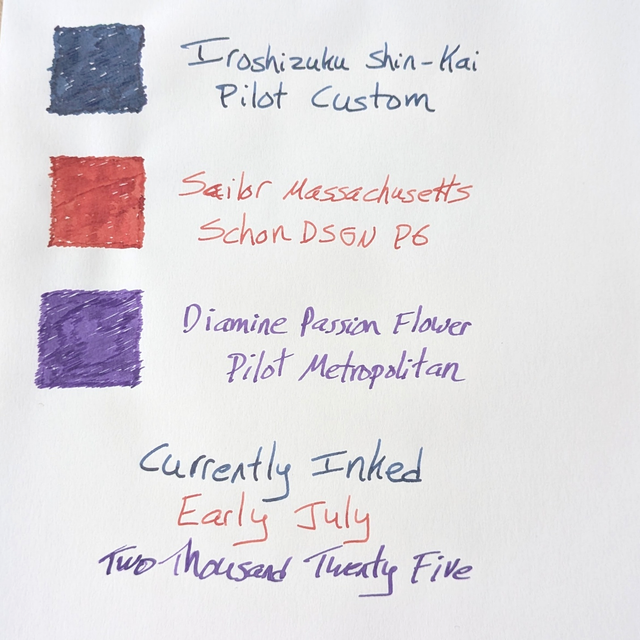 Iroshizuku Shin-Kai
Pilot Custom
Sailor Massachusetts
Schon DSGN P6
Diamine Passion Flower
Pilot Metropolitan
Currently Inked
Early July
Two Thousand Twenty Five